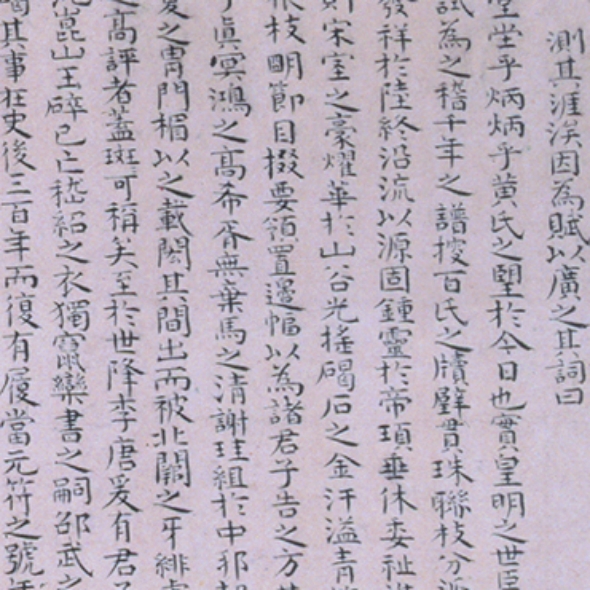 測其涯涘因為賦以廣之其詞曰
堂堂乎炳炳乎黄氏之朢於今日也實皇明之世臣
試為之稽千年之譜搜百氏之牘驊貫珠聯枝分派
發祥於陸終沿流以源固鍾靈於帝頊垂休委祉
則宋室之豪耀華於山谷光搖碣石之金汗溢青
根枝明節目掇要領置邊幅以為諸君子告之方
乎真冥鴻之高希胥無棄馬之清謝珪組於中邦
爰之胄門楣以之載閎其間出而被北闕之牙緋
之高評者蓋斑可稱矣至於世降李唐爰有君子
崑山玉碎已亡嵇紹之衣獨賔欒書之嗣邵武之
其事在史後三百年而復有履當元符之號